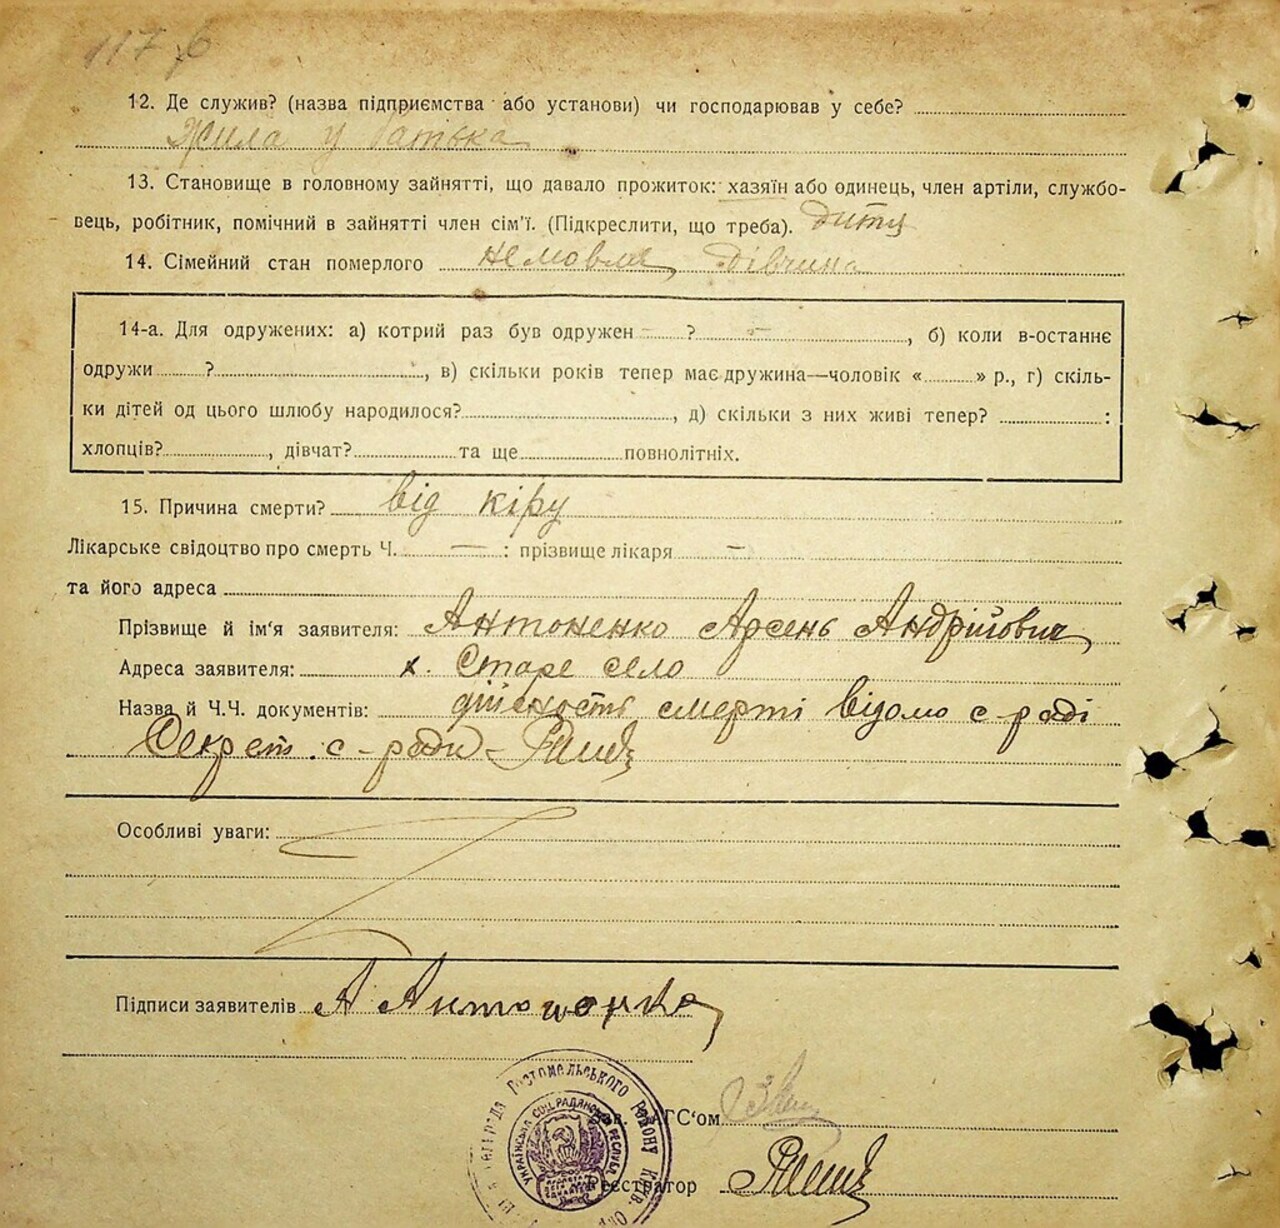 117 б
12. Де служив? (назва підприємства або установи) чи господарював у себе?
Жила у батька
13. Становище в головному зайнятті, що давало прожиток: хазяїн або одинець, член артіли, службо-
вець, робітник, помічний в зайнятті член сім'ї. (Підкреслити, що треба). дитя
14. Сімейний стан померлого немовля дівчина
14-а. Для одружених: а) котрий раз був одружен — ? —, б) коли в-останнє
одружи ?, в) скільки років тепер має дружина—чоловік « » р., г) скіль-
ки дітей од цього шлюбу народилося?, д) скільки з них живі тепер? :
хлопців?, дівчат? та ще повнолітніх.
15. Причина смерти? від кіру
Лікарське свідоцтво про смерть Ч. — : прізвище лікаря —
та його адреса
Прізвище й ім'я заявителя: Антоненко Арсень Андрійович
Адреса заявителя: х. Старе село
Назва й Ч.Ч. документів: дійсность смерті відомо с-раді
Секрет. с-ради-
Особливі уваги:
Підписи заявителів А Антоненко
Гостомельського Району Київ.
УКРАЇНСЬКА СОЦ. РАДЯНСЬКА РЕСПУБ.
ГС'ом
Реєстратор